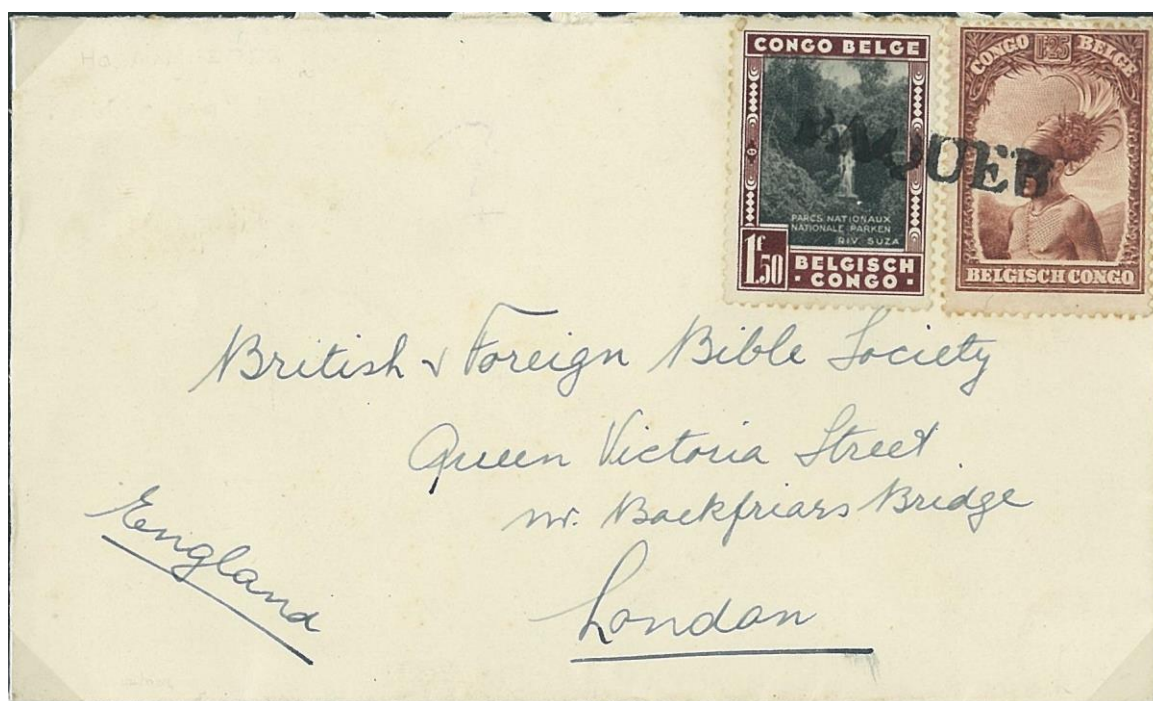 CONGO BELGE
PARCS NATIONAUX
NATIONALE PARKEN
RIV SUZA
1f.50
BELGISCH
· CONGO ·
CONGO 1.25 BELGE
BELGISCH CONGO
British & Foreign Bible Society
Queen Victoria Street
nr. Backfriars Bridge
London
England